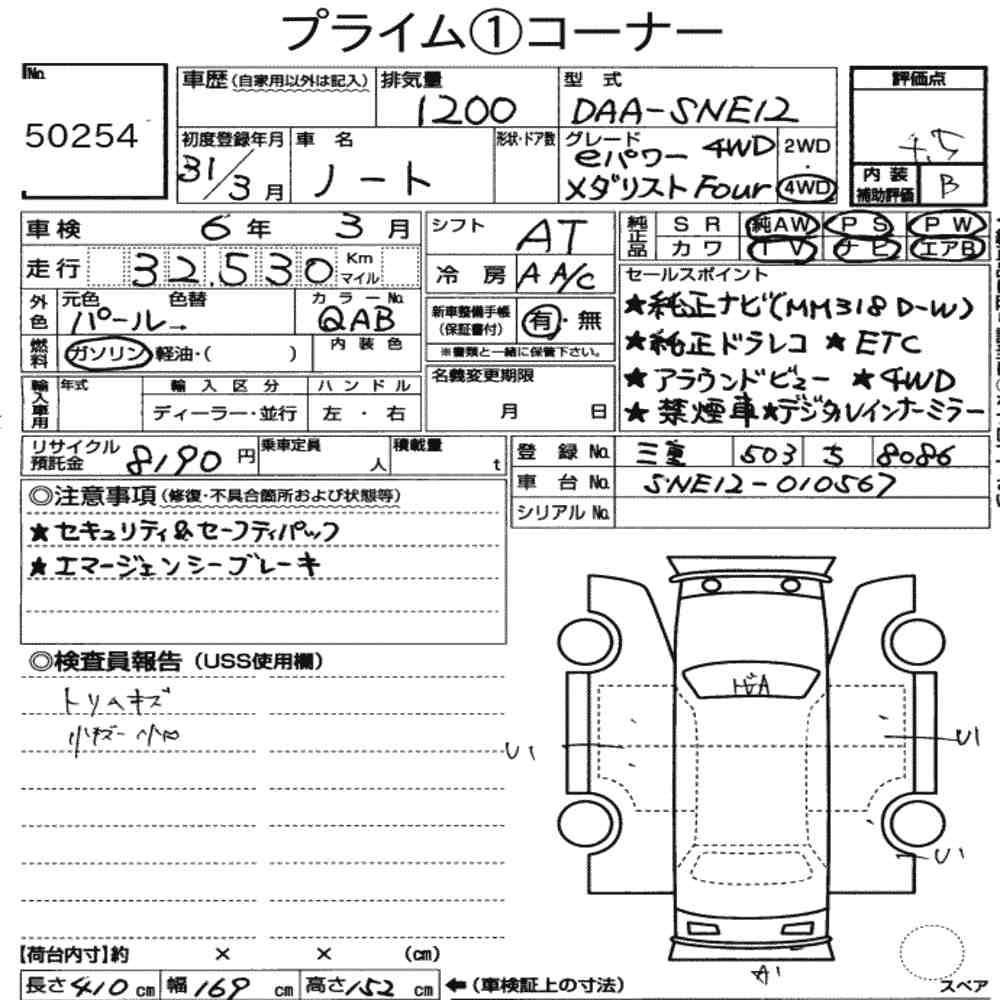 プライム①コーナー
No.
50254
車歴(自家用以外は記入)
排気量
1200
型式
DAA-SNE12
評価点
4.5
初度登録年月
31/3月
車名
ノート
形状・ドア数
グレード
eパワー 4WD
メダリスト Four
2WD
・
4WD
内装
補助評価
B
車検 6年 3月
走行 32,530 Km
マイル
外色
元色 色替
パール→
カラーNo.
QAB
燃料
ガソリン・軽油・( )
内装色
輸入車用
年式
輸入区分
ディーラー・並行
ハンドル
左・右
シフト
AT
冷房
AA/c
新車整備手帳
(保証書付)
有・無
※書類と一緒に保管下さい。
名義変更期限
月 日
純正品
SR 純AW PS PW
カワ TV ナビ エアB
セールスポイント
★純正ナビ(MM318D-W)
★純正ドラレコ ★ETC
★アラウンドビュー ★4WD
★禁煙車★デジタルインナーミラー
リサイクル
預託金
8190円
乗車定員
人
積載量
t
登録No. 三重 503 ち 8086
車台No. SNE12-010567
シリアルNo.
◎注意事項(修復・不具合箇所および状態等)
★セキュリティ&セーフティパック
★エマージェンシーブレーキ
◎検査員報告(USS使用欄)
トリムキズ
小キズ 小凹
U1
U1
U1
A1
【荷台内寸】約 × × (cm)
長さ410cm 幅169cm 高さ152cm ←(車検証上の寸法)
スペア